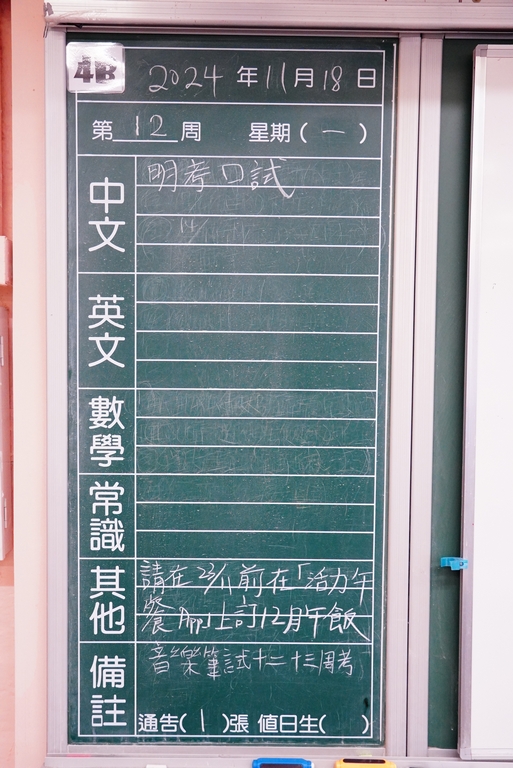 4B
2024 年 11 月 18 日
第 12 周 星期 ( 一 )
中文
明考口試
英文
數學
常識
其他
請在 23/11 前在「活力午
餐 App」上訂12月午飯
備註
音樂筆試十二 十三周考
通告( 1 )張 值日生( )